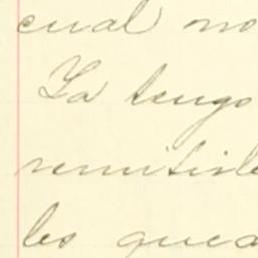 cual no
Ya tengo
remitirle
les queda